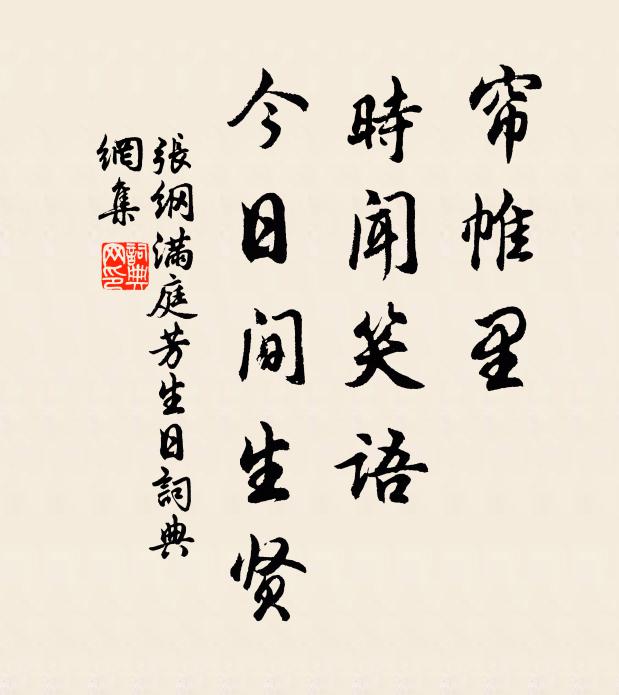 帘帷里
時闻笑语
今日间生贤
張纲满庭芳生日詞典
網集
詞典网印